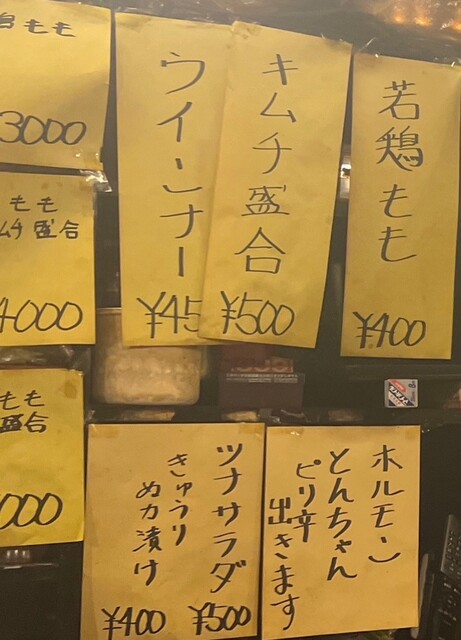 若鶏もも
¥400
キムチ盛合
¥500
ウインナー
¥45
鶏もも
3000
もも
ムチ盛合
4000
もも
盛合
000
ホルモン
とんちゃん
ピリ辛
出きます
ツナサラダ
¥500
きゅうり
ぬカ漬け
¥400